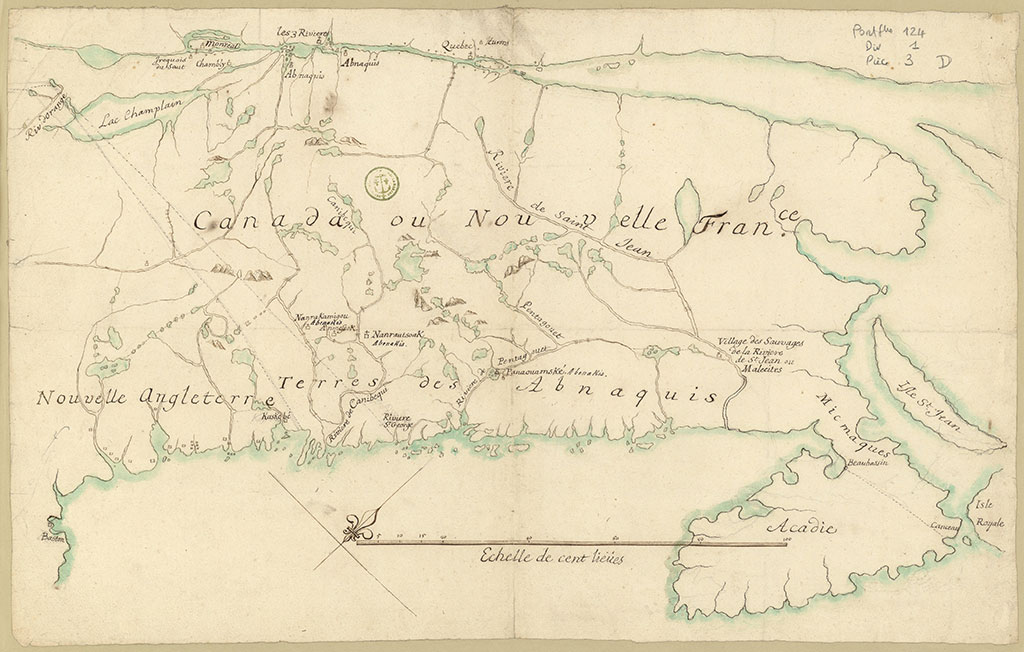 Portflle 124
Div 1
Piéce 3 D
les 3 Rivieres
Quebec
hurons
Monreal
Iroquois
du Saut
Chambly
Abnaquis
Abnaquis
Riv. d'orange
Lac Champlain
Riviere de Saint Jean
Canibequi
Canada ou Nouvelle France
Nanrakamigou
Abenakis
Nanrautsoak
Abenakis.
Pentagouet
Riviere Pentagouet
Panaouamské Abenakis.
Village des Sauvages
de la Riviere
de St. Jean ou
Malecites
Nouvelle Angleterre
Terres des Abnaquis
Riviere de Canibequi
Riviere
St George
Isle St. Jean
Micmaques
Beaubassin
Baston
Acadie
Canceau
Isle
Royale
5 10 15 20 100
Echelle de cent lieües